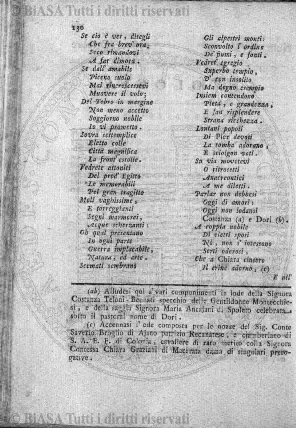 © BIASA Tutti i diritti riservati
130
Se ciò è ver, ditegli
Che fra brev'ora,
Seco rimandovi
A far dimora.
Se dall'amabile
Piceno suolo
Mal rincrescessevi
Muovere il volo;
Del Tebro in margine
Non meno accetto
Soggiorno nobile
Io vi prometto.
Sovra settemplice
Eletto colle
Città magnifica
La fronte estolle.
Vedrete attoniti
Del prof Egitto
Le memorabili
Pel gran tragitto
Moli vaghissime,
E torreggianti
Segni marmorei,
Acque scherzanti:
Ch quai presentano
In ogni parte
Guerra implacabile,
Natura, ed arte.
Scemati sembrano
Gli alpestri monti:
Sconvolto l'ordine
Di fiumi, e fonti.
Vedret egregio
Superbo tempio,
D' insolito
Ma degno esempio
Insiem contendono
Pietà, e grandezza,
E fan risplendere
Strana ricchezza.
Lontani popoli
Di Pier devoti
La tomba adorano
E sciolgon voti.
Su via movetevi
O vitrosetti
Anacreontici
A me diletti.
Parlar non debbesi
Oggi di amori:
Oggi non lodansi
Costanza (a) e Dori (b).
A coppia nobile
Di eletti sposi
Ni, non s'intessono
Serti odorosi,
Che a Chiara cingere
Il crine adorno, (c)
E nell'
(ab) Alludesi qui a vari componimenti in lode della Signora
Costanza Teloni Bennati specchio delle Gentildonne Montecchiesi, e della saggia Signora Maria Ancajani di Spoleto celebrata
sotto il pastoral nome di Dori.
(c) Accennasi l'ode composta per le nozze del Sig. Conte
Saverio Broglio di Ajano patrizio Recanatese, e ciamberlano di
S. A. E. E. di Colonia, cavaliere di raro merito colla Signora
Contessa Chiara Graziani di Macerata dama di singolari prerogative.
© BIASA Tutti i diritti riservati